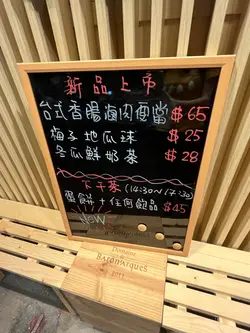 新品上市
台式香腸滷肉便當 $65
梅子地瓜球 $25
冬瓜鮮奶茶 $28
下午茶 (14:30~17:30)
蛋餅 + 任何飲品 $45
HOW
Domaine
de
BARONARQUES